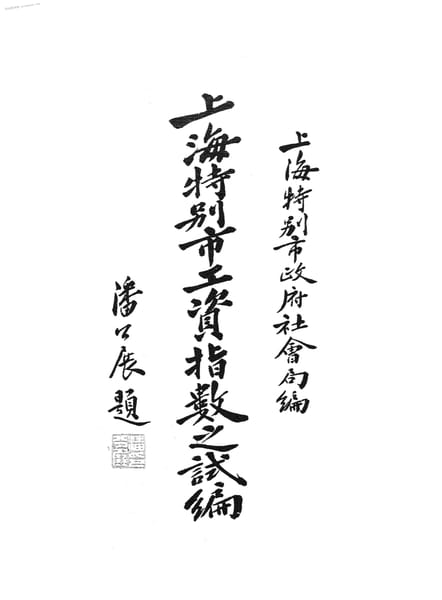 上海特别市政府社會局編
上海特别市工資指數之試編
潘公展題